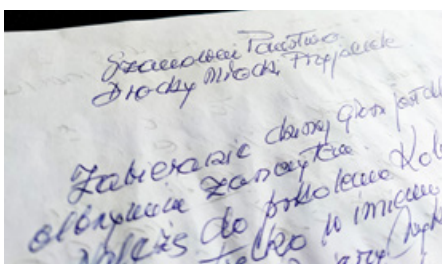 Szanowni Państwo
Drodzy Młodzi Przyjaciele
Zabieranie dzisiaj głosu jest dla
olbrzymim zaszczytem.
Należę do pokolenia Kol
tylko w imieniu